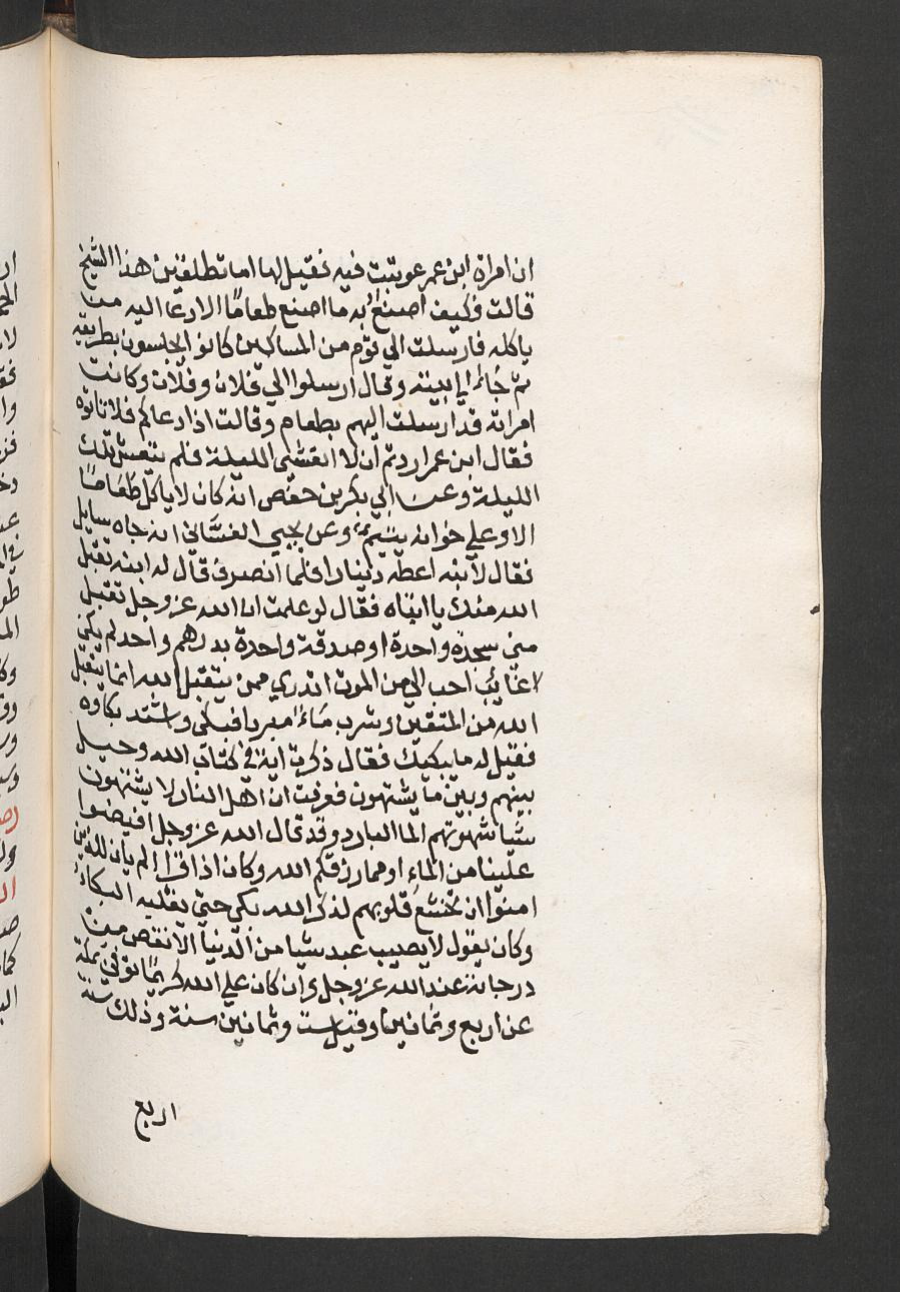 ان امراة ابن عمر عوتبت فيه فقيل لها اما تطلفين هذا الشيخ
قالت وكيف اصنع به ما اصنع طعاما الا دعا اليه من
ياكله فارسلت الي قوم من المساكين كانوا يجلسون بطريقه
ثم جاء الي بيته وقال ارسلوا الي فلان وفلان وكانت
امراته قد ارسلت اليهم بطعام وقالت اذا دعاكم فلا تاتوه
فقال ابن عمر اردتم ان لا اتعشي الليلة فلم يتعش تلك
الليلة وعن ابي بكر بن حفص انه كان لا ياكل طعاما
الا وعلي خوانه يتيم وعن يحيي الغساني انه جاه سايل
فقال لابنه اعطه دينارا فلما انصرف قال له ابنه تقبل
الله منك يا ابتاه فقال لو علمت ان الله عز وجل تقبل
مني سجدة واحدة او صدقة واحدة بدرهم واحد لم يكن
غايب احب الي من الموت اتدري ممن يتقبل الله انما يتقبل
الله من المتقين وشرب ماء مبردا فبكي واشتد بكاوه
فقيل له ما يبكيك فقال ذكرت اية في كتاب الله وحيل
بينهم وبين ما يشتهون فعرفت ان اهل النار لا يشتهون
شيا شهوتهم الما البارد وقد قال الله عز وجل افيضوا
علينا من الماء او مما رزقكم الله وكان اذا قرا الم يان للذين
امنوا ان تخشع قلوبهم لذكر الله بكي حتي يغلبه البكاء
وكان يقول لا يصيب عبد شيا من الدنيا الا نقص من
درجاته عند الله عز وجل وان كان علي الله كريما توفي بمكة
عن اربع وثمانين وقيل ست وثمانين سنة وذلك سنة
اربع